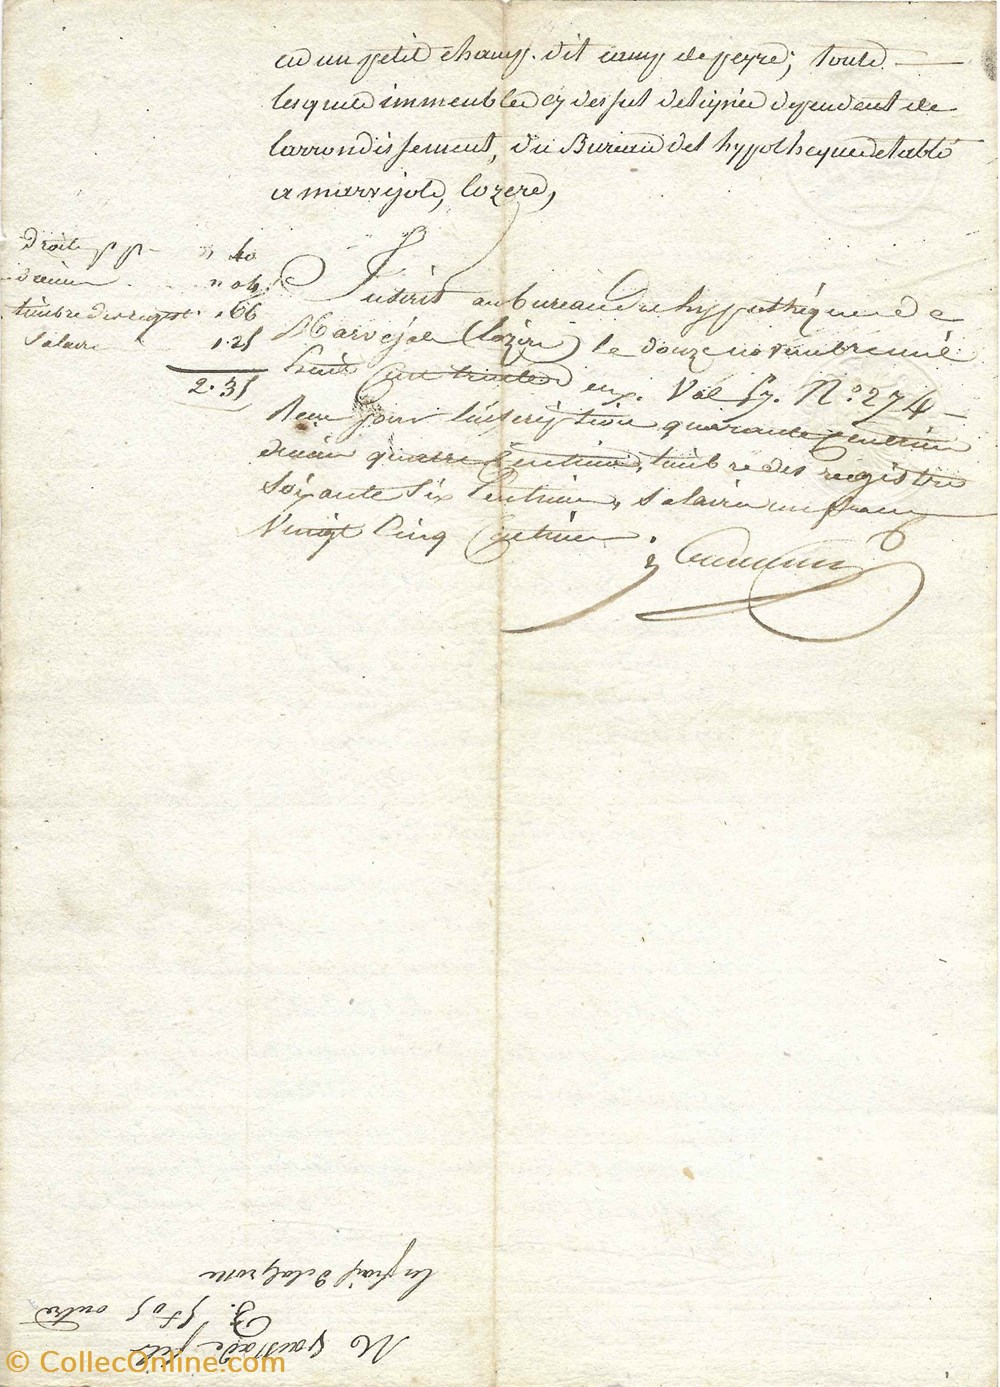 et un petit champ. dit camp de peyre; toute
lesquels immeubles cy dessus designés dependent de
l'arrondissement, du Bureau des hypotheques etabli
a marvejols, lozere,
droit p p " 40
decime " 04
timbre des regist. " 66
Salaire 1.25
2.35
Inscrit au bureau des hypothèques de
Marvejols (Lozère) le douze novembre mil
huit cent trente deux. Vol 57. N° 274
Reçu pour l'inscription quarante centimes
decime quatre centimes, timbre des registres
Soixante Six Centimes, Salaire un franc
Vingt Cinq Centimes
M fils
5f 05 outre
les frais de la grosse
© CollecOnline.com